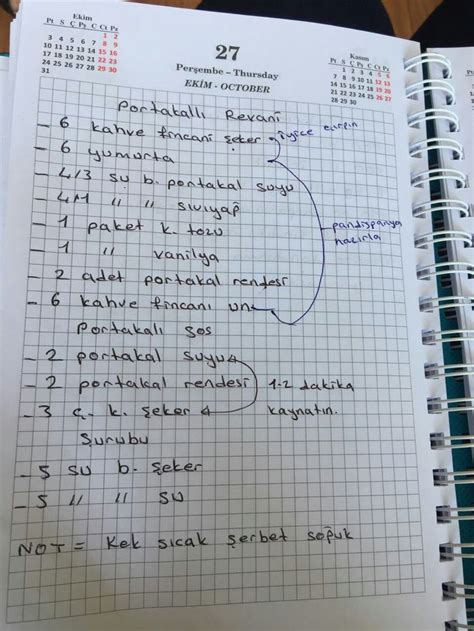 Ekim
Pt S Ç Pş C Ct Pz
1 2
3 4 5 6 7 8 9
10 11 12 13 14 15 16
17 18 19 20 21 22 23
24 25 26 27 28 29 30
31
27
Perşembe – Thursday
EKİM - OCTOBER
Kasım
Pt S Ç P C Ct Pz
1 2 3 4 5 6
7 8 9 10 11 12 13
14 15 16 17 18 19 20
21 22 23 24 25 26 27
28 29 30
Portakallı Revani
- 6 kahve fincanı şeker iyice çırpın
- 6 yumurta
- 4/3 su b. portakal suyu
- 4/1 " " sıvıyağ
- 1 paket k. tozu
- 1 " vanilya
pandispanya
hazırla
- 2 adet portakal rendesi
- 6 kahve fincanı un
Portakallı sos
- 2 portakal suyu
- 2 portakal rendesi 1-2 dakika
- 3 ç. k. şeker kaynatın.
Şurubu
- 5 su b. şeker
- 5 " " su
NOT = Kek sıcak şerbet soğuk